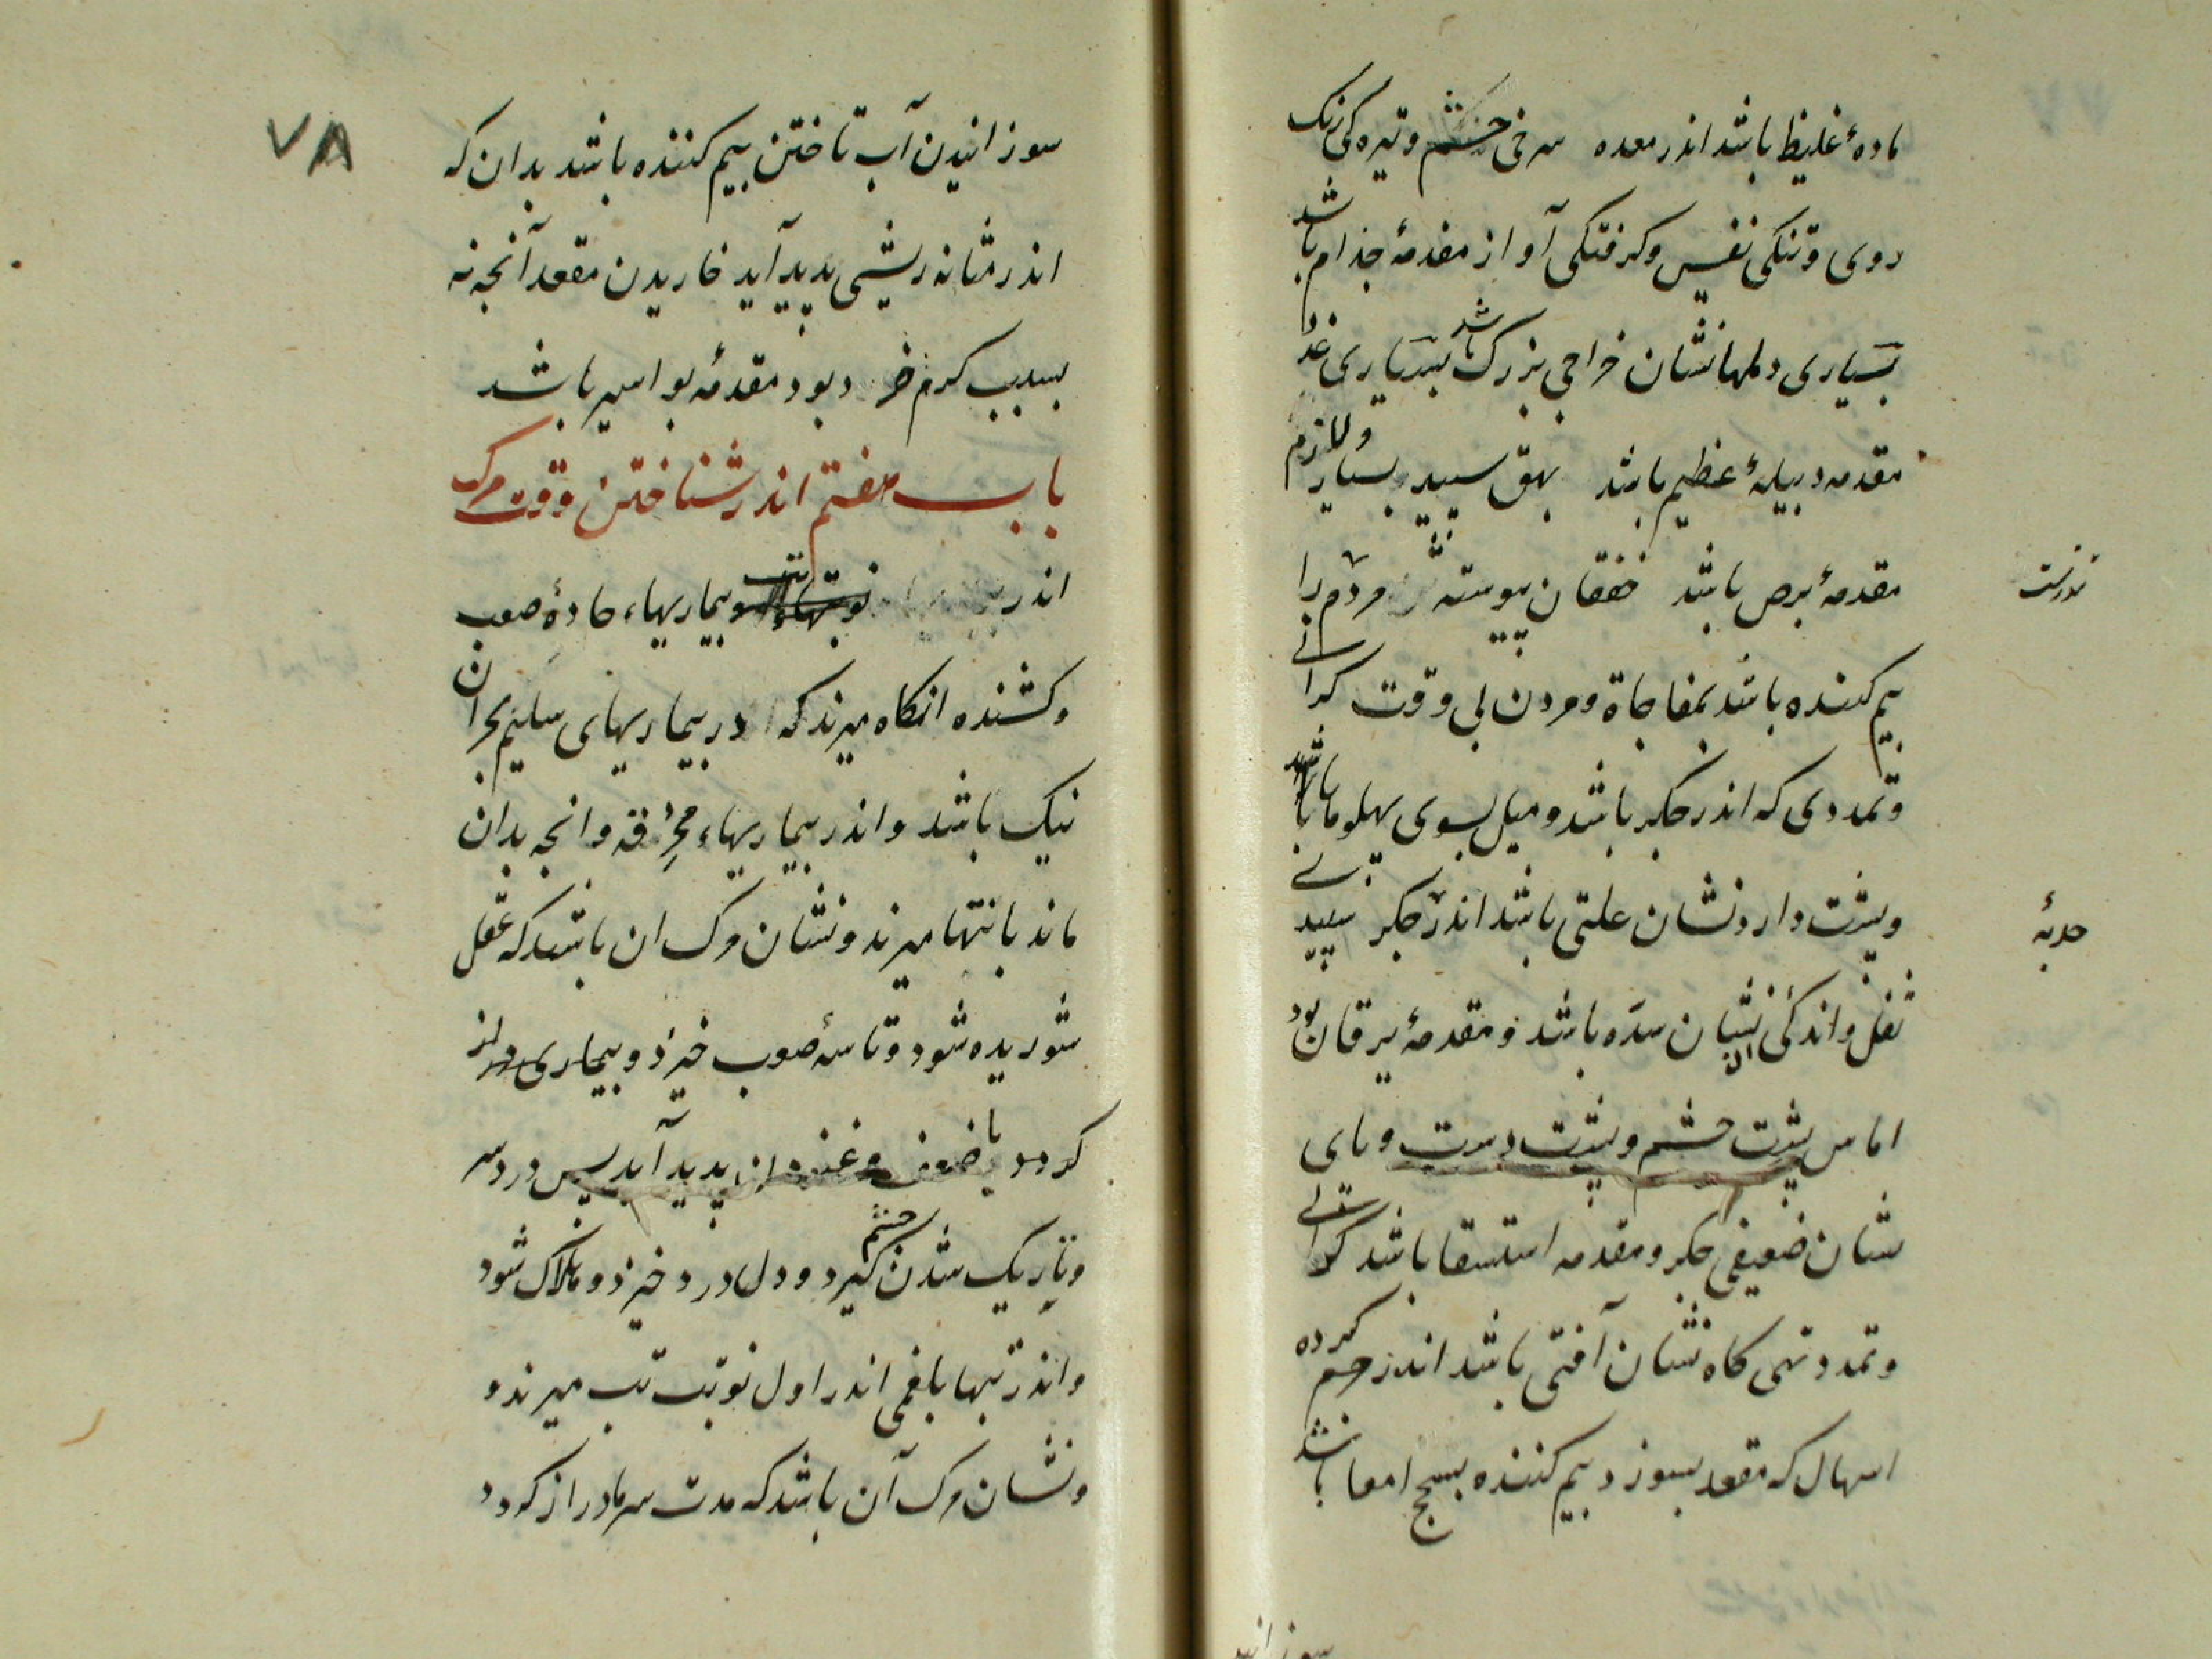 مادهٔ غلیظ باشد اندر معده سرخی چشم و تیره‌کی رنک
روی و تنکی نفس و کرفتکی آواز مقدمهٔ جذام باشد
بسیاری دملها نشان خراجی بزرک باشد بسیاری غدد
مقدمه دبیلهٔ عظیم باشد بهق سپید بسیار و لازم
مقدمهٔ برص باشد خفقان پیوسته مردم را
بیم کننده باشد بمفاجاة و مردن بی وقت کرانی
و تمددی که اندر جکر باشد و میل بسوی پهلوها باشد
و پشت دارد نشان علتی باشد اندر جکر سپیدی
ثفل و اندکی آن نشان سدّه باشد و مقدمهٔ یرقان بود
اماس پشت چشم و پشت دست و پای
نشان ضعیفی جکر و مقدمه استسقا باشد کرانی
و تمدد تهی کاه نشان آفتی باشد اندر کرده
اسهال که مقعد بسوزد بیم کننده بسحج امعا باشد
سوزانید
۷۸
سوزانیدن آب تاختن بیم کننده باشد بدان که
اندر مثانه ریشی پدید آید خاریدن مقعد آنجه نه
بسبب کرم خرد بود مقدمهٔ بواسیر باشد
باب هفتم اندر شناختن وقت مرک
اندر نوبتهاء تب بیماریهاء حادهٔ صعب
و کشنده انکاه میرند که در بیماریهای سلیم بحران
نیک باشد و اندر بیماریهاء محرقه و انجه بدان
ماند بانتها میرند و نشان مرک ان باشد که عقل
شوریده شود و تاسهٔ صعب خیزد و بیماری دراز
کردد یا ضعف و غنودن پدید آید پس درد سر
و تاریک شدن چشم کیرد و دل درد خیزد و هلاک شود
و اندر تبها بلغمی اندر اول نوبت تب میرند و
و نشان مرک آن باشد که مدت سرما دراز کردد